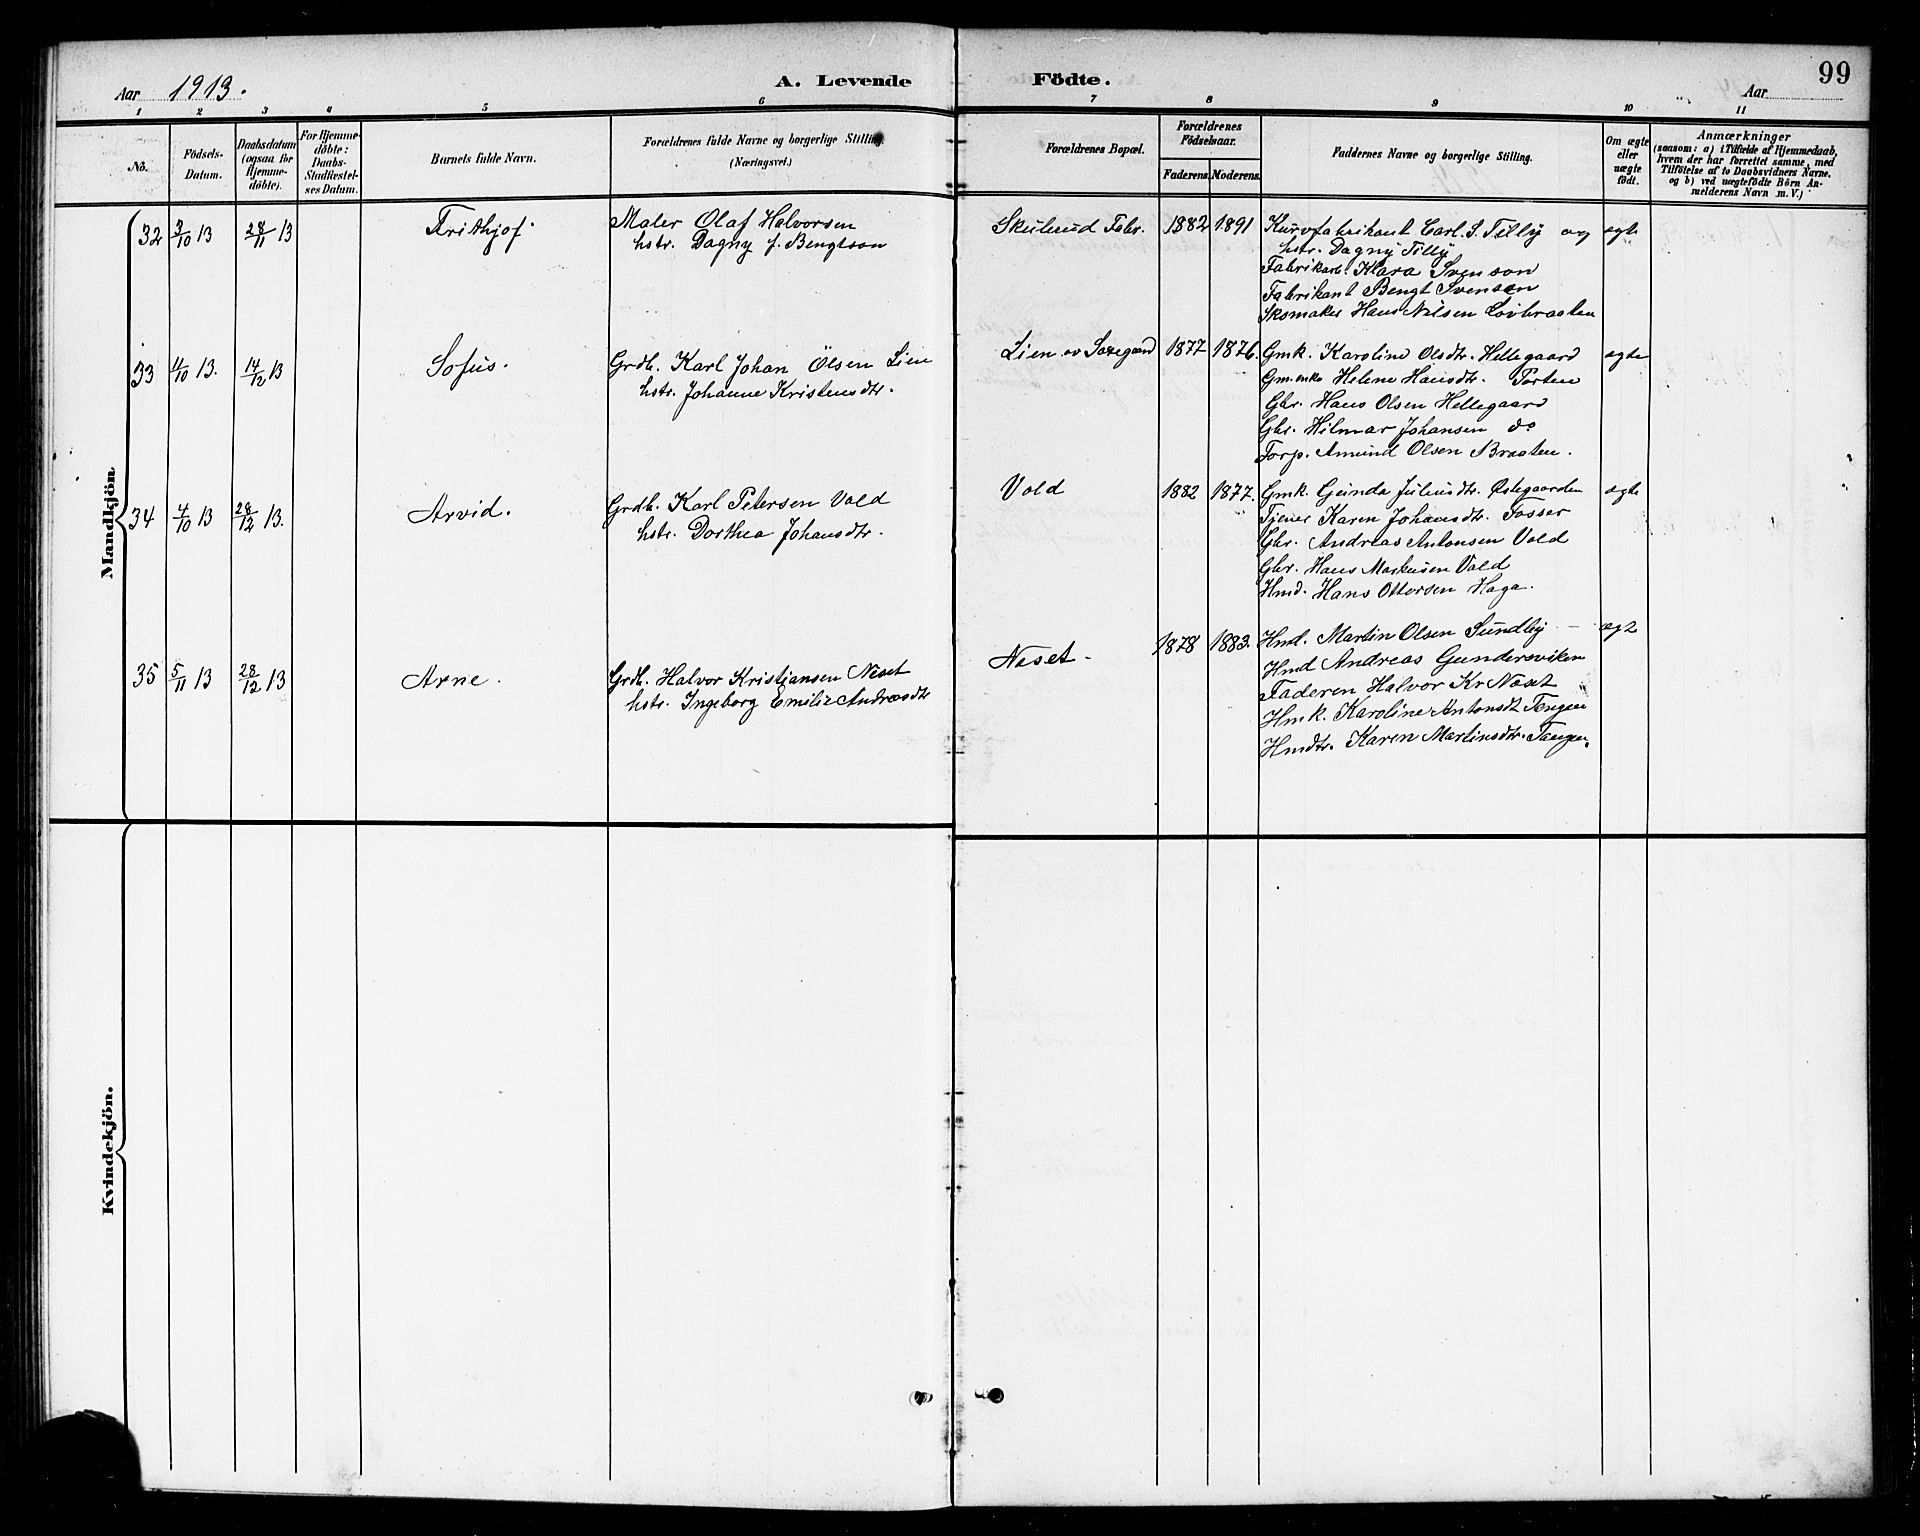 Aar 1913.
A. Levende Födte.
99
Aar
1 2 3 4 5 6 7 8 9 10 11
No.
Födsels-Datum.
Daabsdatum (ogsaa for Hjemmedöbte).
For Hjemmedöbte: Daabs-Stadfæstelses Datum.
Barnets fulde Navn.
Forældrenes fulde Navne og borgerlige Stilling. (Næringsvei.)
Forældrenes Bopæl.
Forældrenes Födselsaar.
Faderens. Moderens.
Faddernes Navne og borgerlige Stilling.
Om ægte eller uægte födt.
Anmærkninger
(saasom: a) i Tilfælde af Hjemmedaab,
hvem der har forrettet samme, med
Tilföielse af to Daabsvidners Navne.
og b) ved uægtefödte Börn An-
melderens Navn m. V.)
Mandkjön
32 3/10 13 28/11 13 Frithjof. Maler Olaf Halvorsen Skulerud Fabr. 1882 1891 Kurvfabrikant Carl. S. Tilly og ægte
hstr. Dagny f. Bengtson hstr. Dagny Tilly
Fabrikarb. Klara Svenson
Fabrikant Bengt Svenson
Skomaker Hans Nilsen Lövbraaten
33 4/10 13. 14/12 13 Sofus. Grdb. Karl Johan Olsen Lien Lien 1877 1876. Gmk. Karoline Olsdtr. Hellegaard ægte
hstr. Johanne Kristensdtr. Gm.enke Helene Hansdtr. Porten
Gbr. Hans Olsen Hellegaard
Gbr. Hilmar Johansen do
Forp. Amund Olsen Braaten.
34 4/10 13 28/12 13. Arvid. Grdb. Karl Petersen Vold Vold 1882 1877. Gmk. Gunda Juliusdtr. Østegaarden ægte
hstr. Dorthea Johansdtr. Tjener Karen Johansdtr. Fosser
Gbr. Andreas Antonsen Vold
Gbr. Hans Markusen Vold
Hmd. Hans Ottersen Haga.
35 5/11 13 28/12 13 Arne. Grdb. Halvor Kristjansen Næset Næset. 1878 1883. Hmd. Martin Olsen Sundby ægt
hstr. Ingeborg Emilie Andreasdtr Hmd Andreas Gundersviken
Faderen Halvor Kr Næset
Hmk. Karoline Antonsdt Tangen
Hmdtr. Karen Martinsdtr. Tangen.
Kvindekjön.